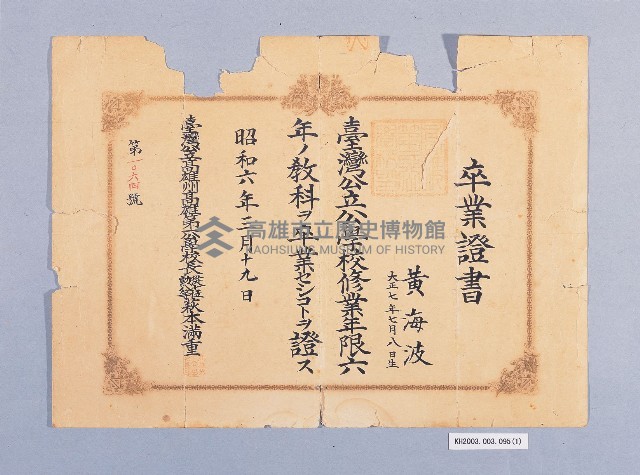 卒業證書
黃海波
大正七年七月八日生
臺灣公立公學校修業年限六
年ノ教科ヲ卒業セシコトヲ證ス
昭和六年三月十九日
臺灣公立高雄州高雄第一公學校長
萩本滿重
第 號
高雄市立歷史博物館
KAOHSIUNG MUSEUM OF HISTORY
KH2003.003.095(1)